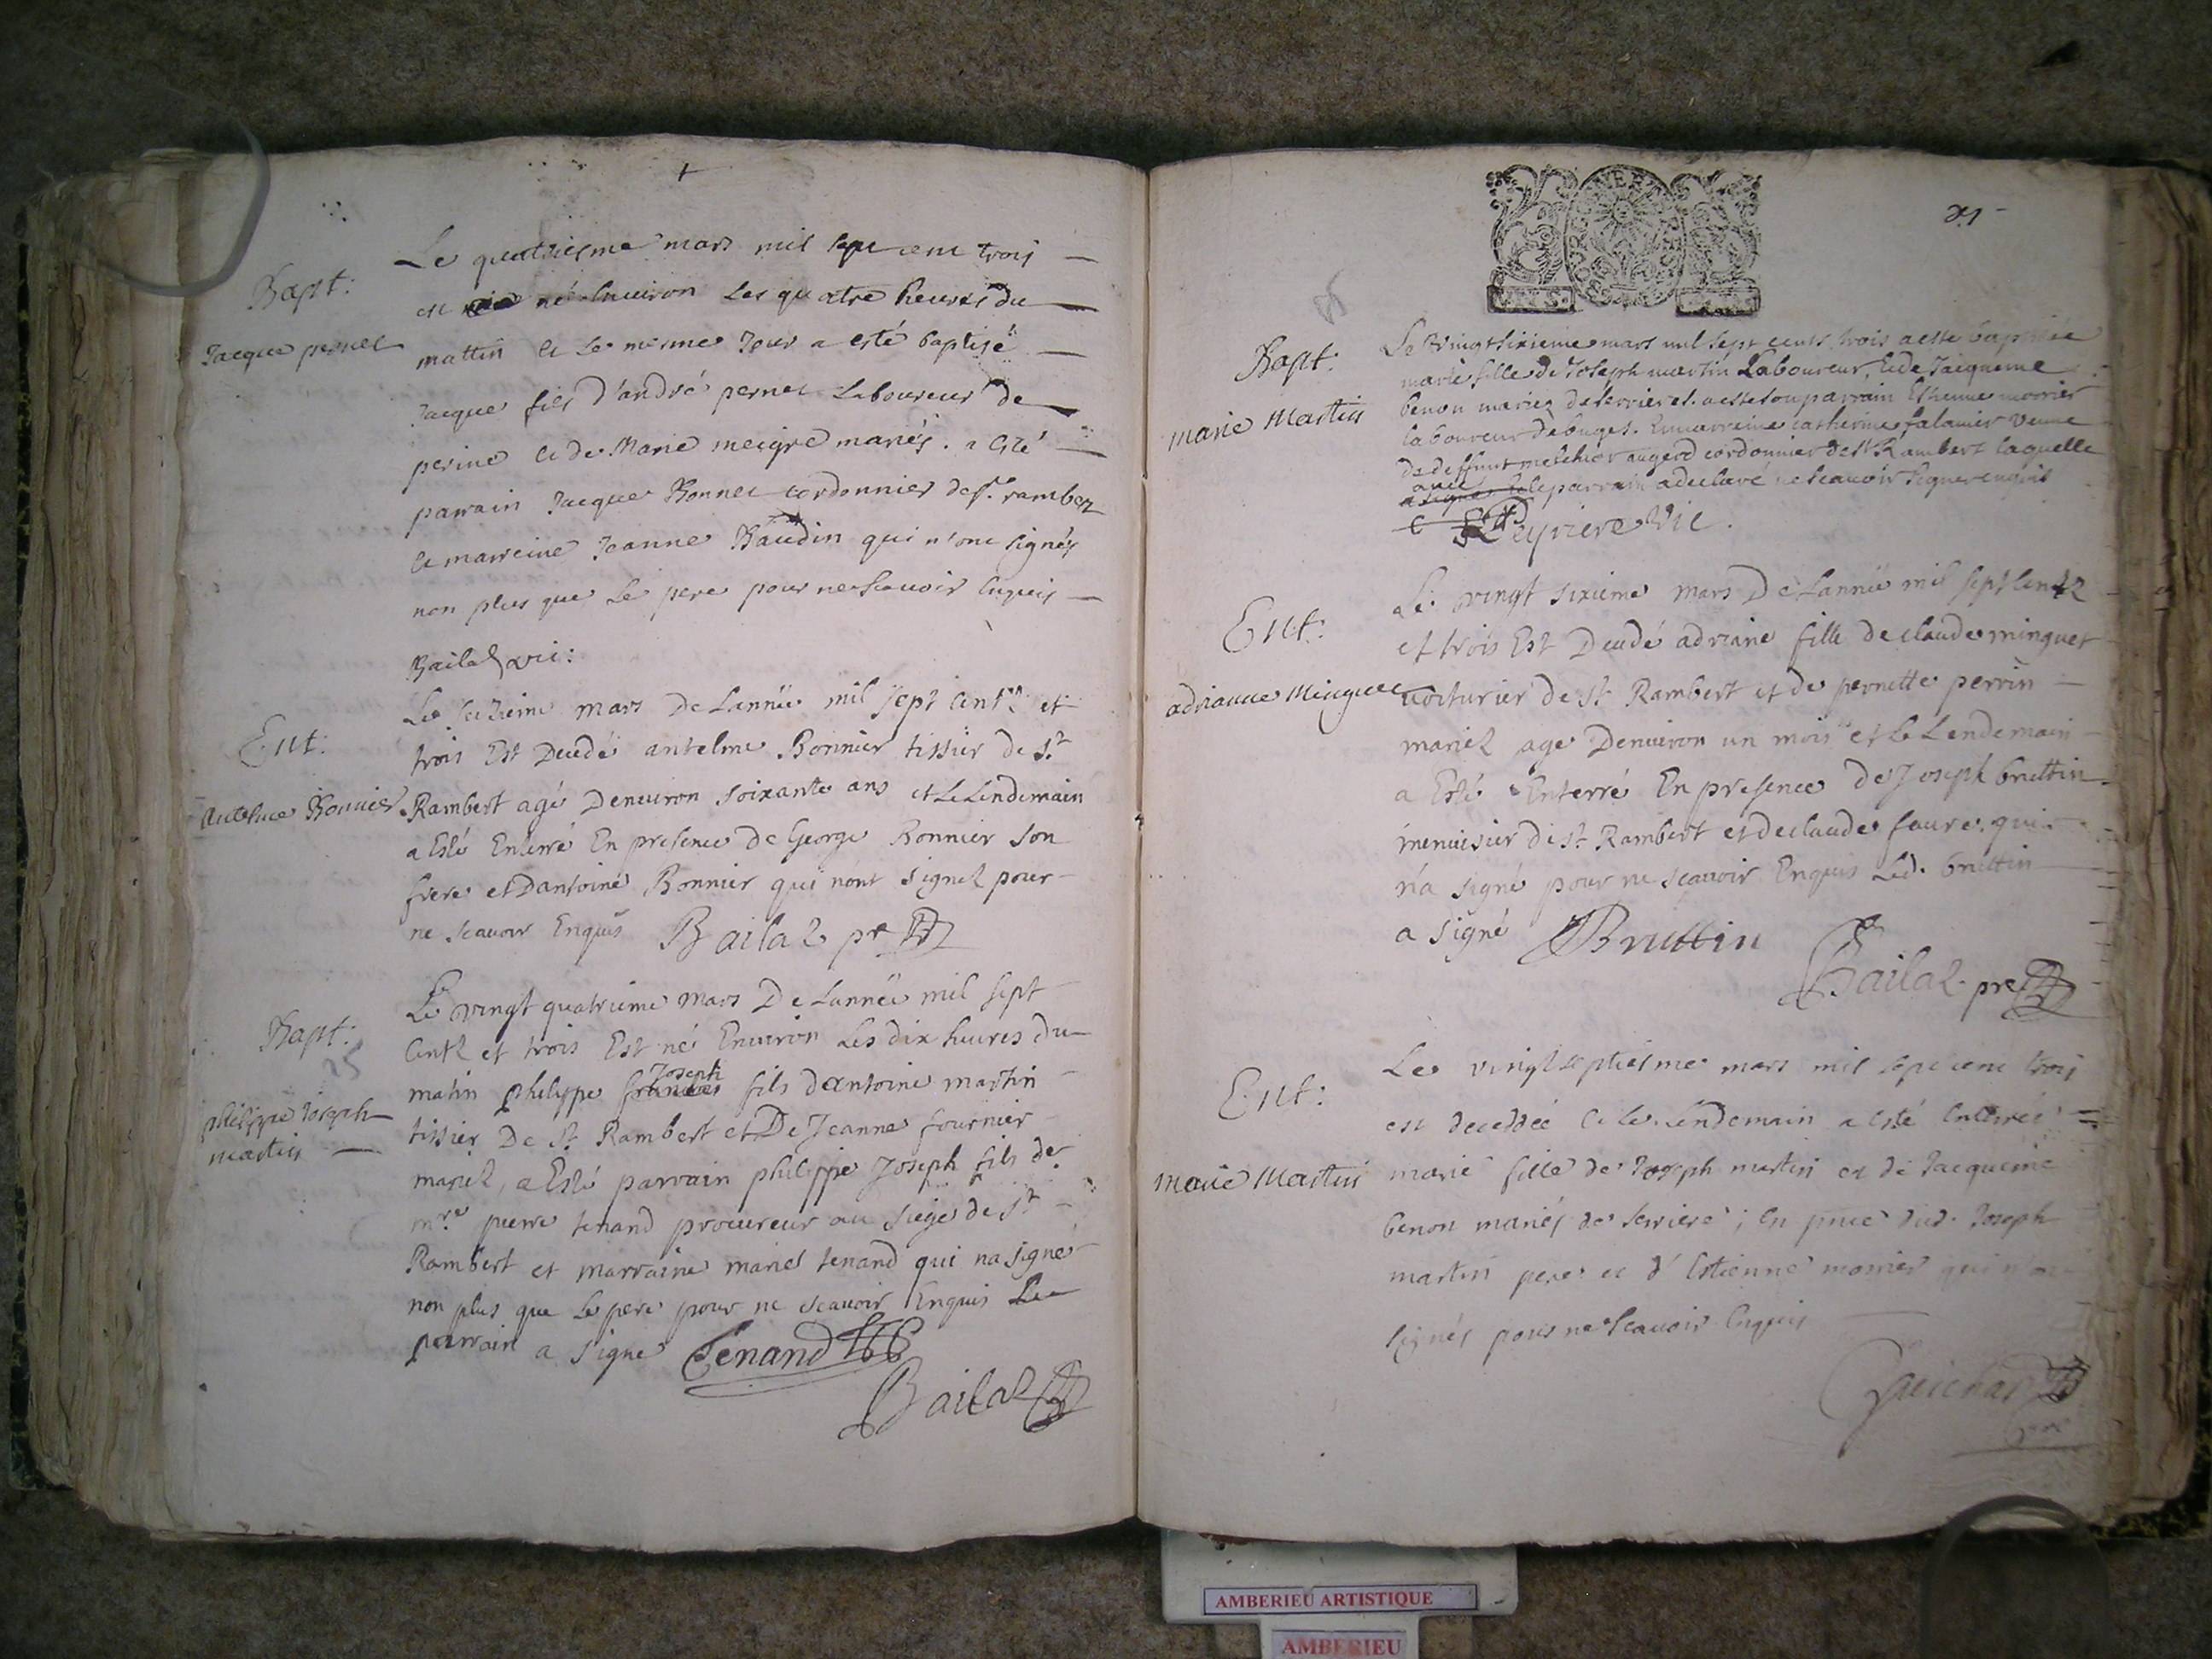 Bapt:
Jacque pernet
Le quatriesme mars mil sept cent trois
est né environ les quatre heures du
mattin et le mesme jour a esté baptisé
Jacque fils d'andré pernet Laboureur de
perine et de Marie meigre mariés. a esté
parrain Jacque Bonnet cordonnier de st. rambert
et marreine Jeanne Baudin qui n'ont signés
non plus que le pere pour ne scavoir enquis
Bailat vic:
Ent:
Antelme Bonnier
Le seizieme mars De Lannée mil sept centz et
trois Est Decedé antelme Bonnier tissier de St
Rambert agé Denuiron soixante ans et Le Lendemain
a Esté Enterré En presence De George Bonnier son
frere et Dantoine Bonnier qui nont signez pour
ne scauoir Enquis Bailat pre
Bapt:
25
philippe Joseph
martin
Le vingt quatrieme mars De Lannée mil sept
Centz et trois Est né Enuiron Les dix heures du
matin philippe Joseph fils dantoine martin
tissier De St Rambert et De Jeanne fournier
mariez, a Esté parrain philippe Joseph fils de
mre pierre tenand procureur au siege de St
Rambert et marraine marie tenand qui na signé
non plus que Le pere pour ne scauoir Enquis Le
parrain a signé Tenand
Bailat
21
Bapt:
marie Martin
Le Vingtsixieme mars mil sept cents trois a esté baptisée
marie fille de Joseph martin Laboureur, et de Jacqueme
benon mariez de serrieres. a esté son parrain Ethienne monier
laboureur de buges. Et marreine catherine falavier veuve
de deffunt melchior augerd cordonnier de st Rambert laquelle
avec le parrain a declaré ne scavoir signer enquis
Peyriere Vic.
Ent:
adrianne Minguet
Le vingt sixieme mars De Lannée mil sept Centz
et trois Est Decedé adriane fille de claude minguet
voiturier de St Rambert et de pernette perrin
mariez age Denuiron un mois et le Lendemain
a Esté Enterré En presence de Joseph bruttin
menuisier de St Rambert et de claude faure qui
n'a signé pour ne scauoir Enquis Led. bruttin
a signé Bruttin
Bailat pre
Ent:
Marie Martin
Le vingtseptiesme mars mil sept cent trois
est deceddée et le lendemain a esté enterrée
marie fille de Joseph martin et de Jacqueme
benon mariés de serriere; en pnce dud. Joseph
martin pere et d'Estienne monier qui n'ont
signés pour ne scavoir enquis
Guichard
pre
AMBERIEU ARTISTIQUE
AMBERIEU